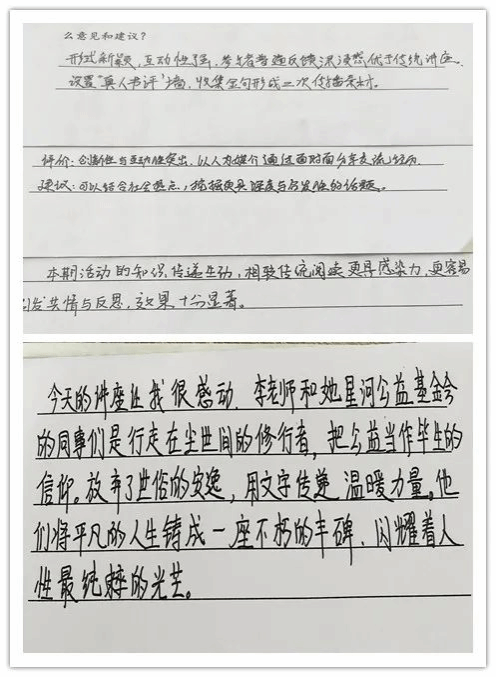 么意见和建议?
形式新颖,互动性强,参与者普遍反馈沉浸感优于传统讲座。
设置"真人书评"墙,收集金句形成二次传播素材。
评价:创新性与互动性突出,以人为媒介通过面对面分享交流经历
建议:可以结合社会热点,挖掘更具深度与启发性的话题。
本期活动的知识传递生动,相较传统阅读更具感染力,更容易
引发共情与反思,效果十分显著。
今天的讲座让我很感动,李老师和她星河公益基金会
的同事们是行走在尘世间的修行者,把公益当作毕生的
信仰。放弃了世俗的安逸,用文字传递温暖力量。他
们将平凡的人生铸成一座不朽的丰碑,闪耀着人
性最纯粹的光芒。